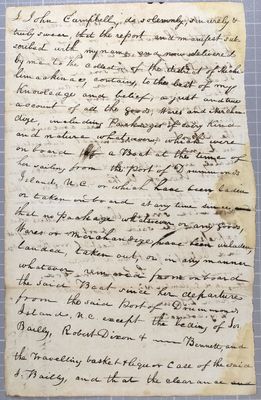 I John Campbell, do solemnly, sincerely &
truly swear, that the report and manifest sub
scribed with my name, and now delivered
by me to the collector of the district of Mich
ilimackinac contains, to the best of my
Knowledge and belief, a just and true
account of all the goods, Wares and Merchan
dize, including Packages of every Kind
and nature whatsoever, which were
on board a Boat at the time of
her sailing from the port of Drummond
Island, U.C. or which have been laden
or taken on board at any time since, and
that no package whatsoever or any goods,
Wares or Merchandize have been unladen
landed, taken out, or in any manner
whatever removed from on board
the said Boat since her departure
from the said Port of Drummond
Island, U.C. except the bedding of Jos
Bailly, Robert Dixon & Bennett, and
the travelling basket & liquor case of the said
J. Bailly, and that the clearance and